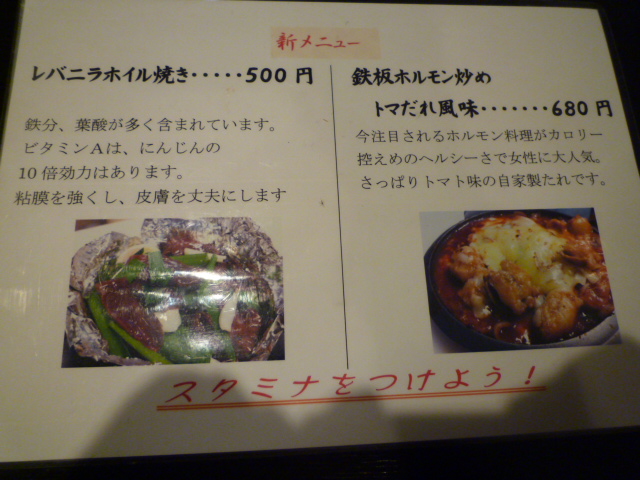 新メニュー
レバニラホイル焼き・・・・・500円
鉄分、葉酸が多く含まれています。
ビタミンAは、にんじんの
10倍効力はあります。
粘膜を強くし、皮膚を丈夫にします
鉄板ホルモン炒め
トマだれ風味・・・・・・・680円
今注目されるホルモン料理がカロリー
控えめのヘルシーさで女性に大人気。
さっぱりトマト味の自家製たれです。
スタミナをつけよう！